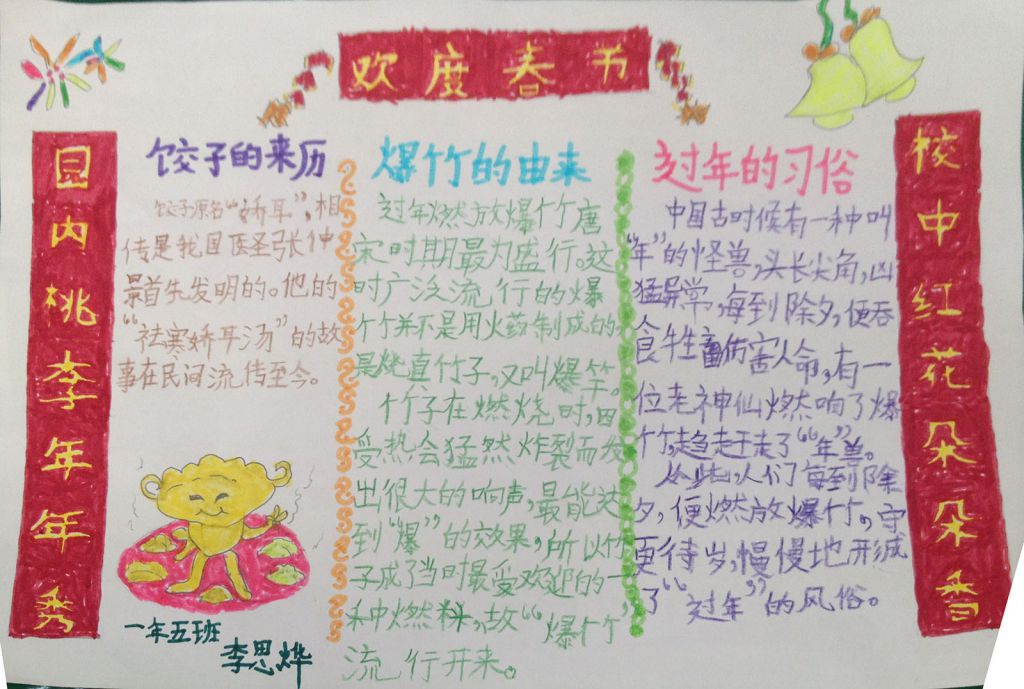 欢度春节
园内桃李年年秀
饺子的来历
饺子原名“娇耳”,相
传是我国医圣张仲
景首先发明的。他的
“祛寒娇耳汤”的故
事在民间流传至今。
一年五班
李思烨
爆竹的由来
过年燃放爆竹唐
宋时期最为盛行。这
时广泛流行的爆
竹并不是用火药制成的
是烧直竹子,又叫爆竿。
竹子在燃烧时,因
受热会猛然炸裂而发
出很大的响声,最能达
到“爆”的效果,所以竹
子成了当时最受欢迎的一
种燃料,故“爆竹”
流行开来。
过年的习俗
中国古时候有一种叫
“年”的怪兽,头长尖角,凶
猛异常,每到除夕,便吞
食牲畜伤害人命,有一
位老神仙燃响了爆
竹,赶走了“年”兽。
从此,人们每到除
夕,便燃放爆竹,守
更待岁,慢慢地形成
了“过年”的风俗。
校中红花朵朵香